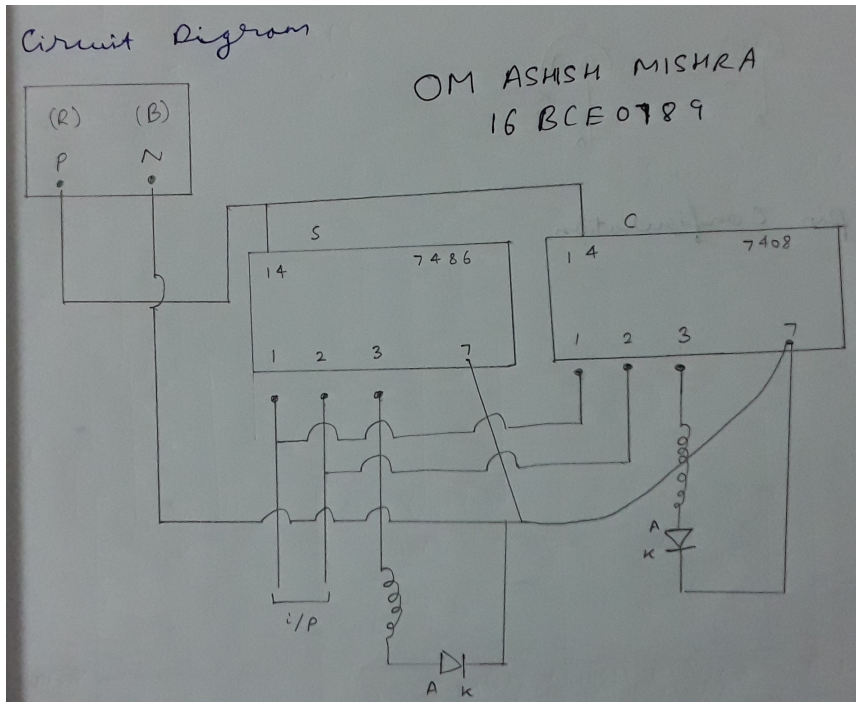 Circuit Digram
OM ASHISH MISHRA
16 BCE0789
(R) (B)
P N
S
C
14 7486
14 7408
1 2 3 7
1 2 3 7
A
K
i/p
A K